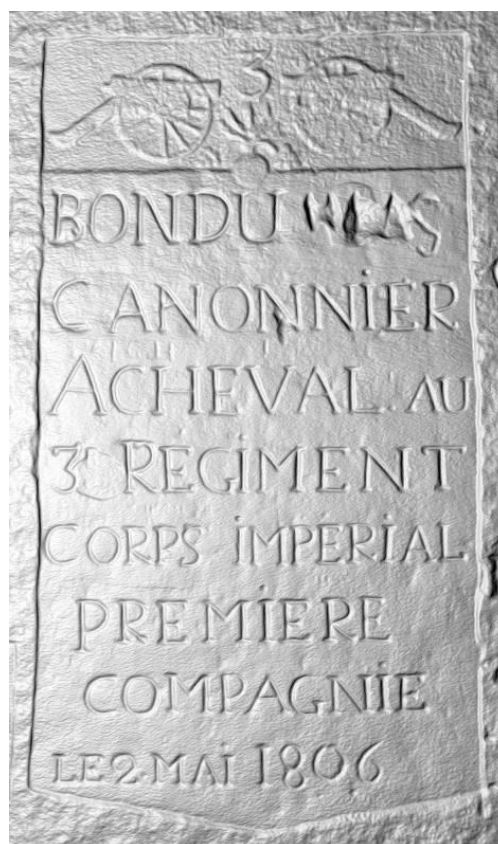 3
BONDU
CANONNIER
ACHEVAL. AU
3 REGIMENT
CORPS IMPERIAL
PREMIERE
COMPAGNIE
LE 2 MAI 1806